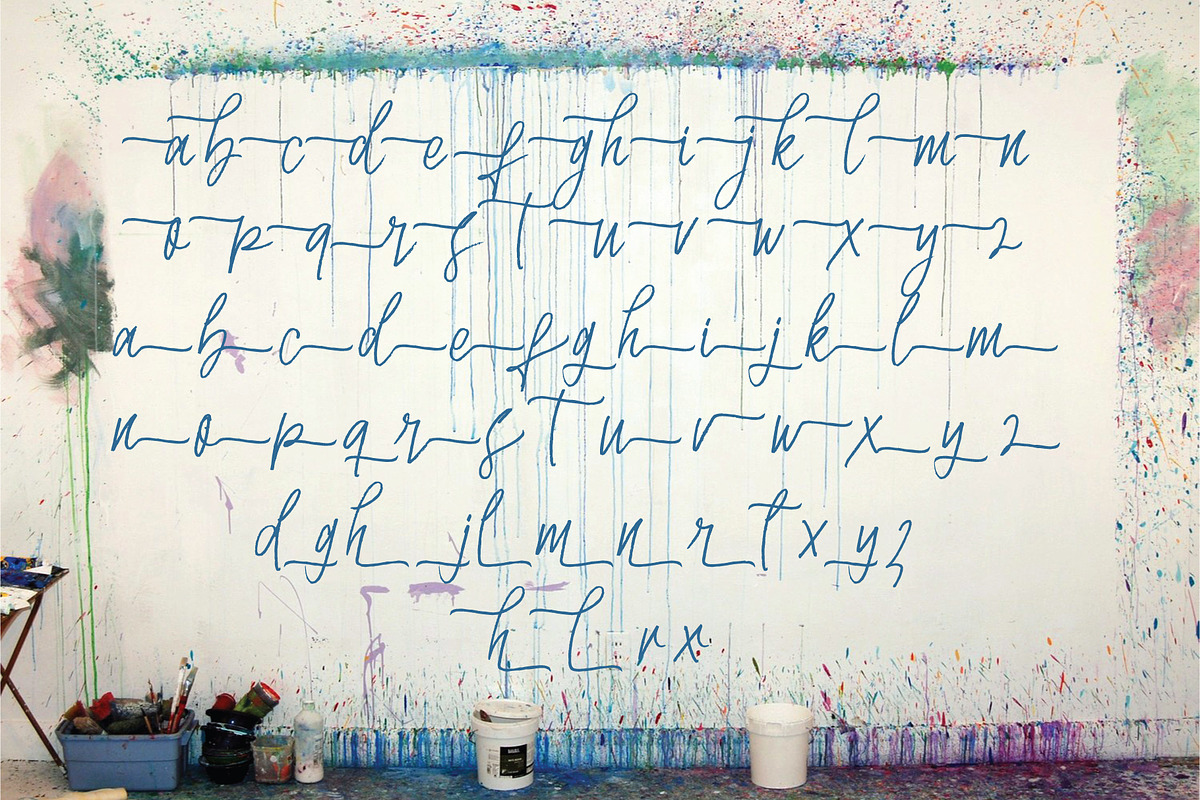 a b c d e f g h i j k l m n
o p q r s t u v w x y z
a b c d e f g h i j k l m
n o p q r s t u v w x y z
d g h j l m n r t x y z
h l r x